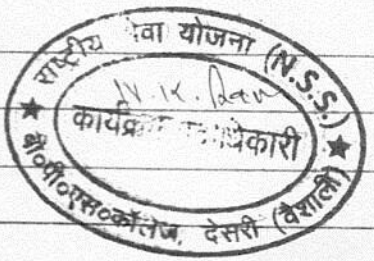 राष्ट्रीय सेवा योजना (N.S.S.)
N.K.
कार्यक्रम पदाधिकारी
बी०पी०एस०कॉलेज, देसरी (वैशाली)